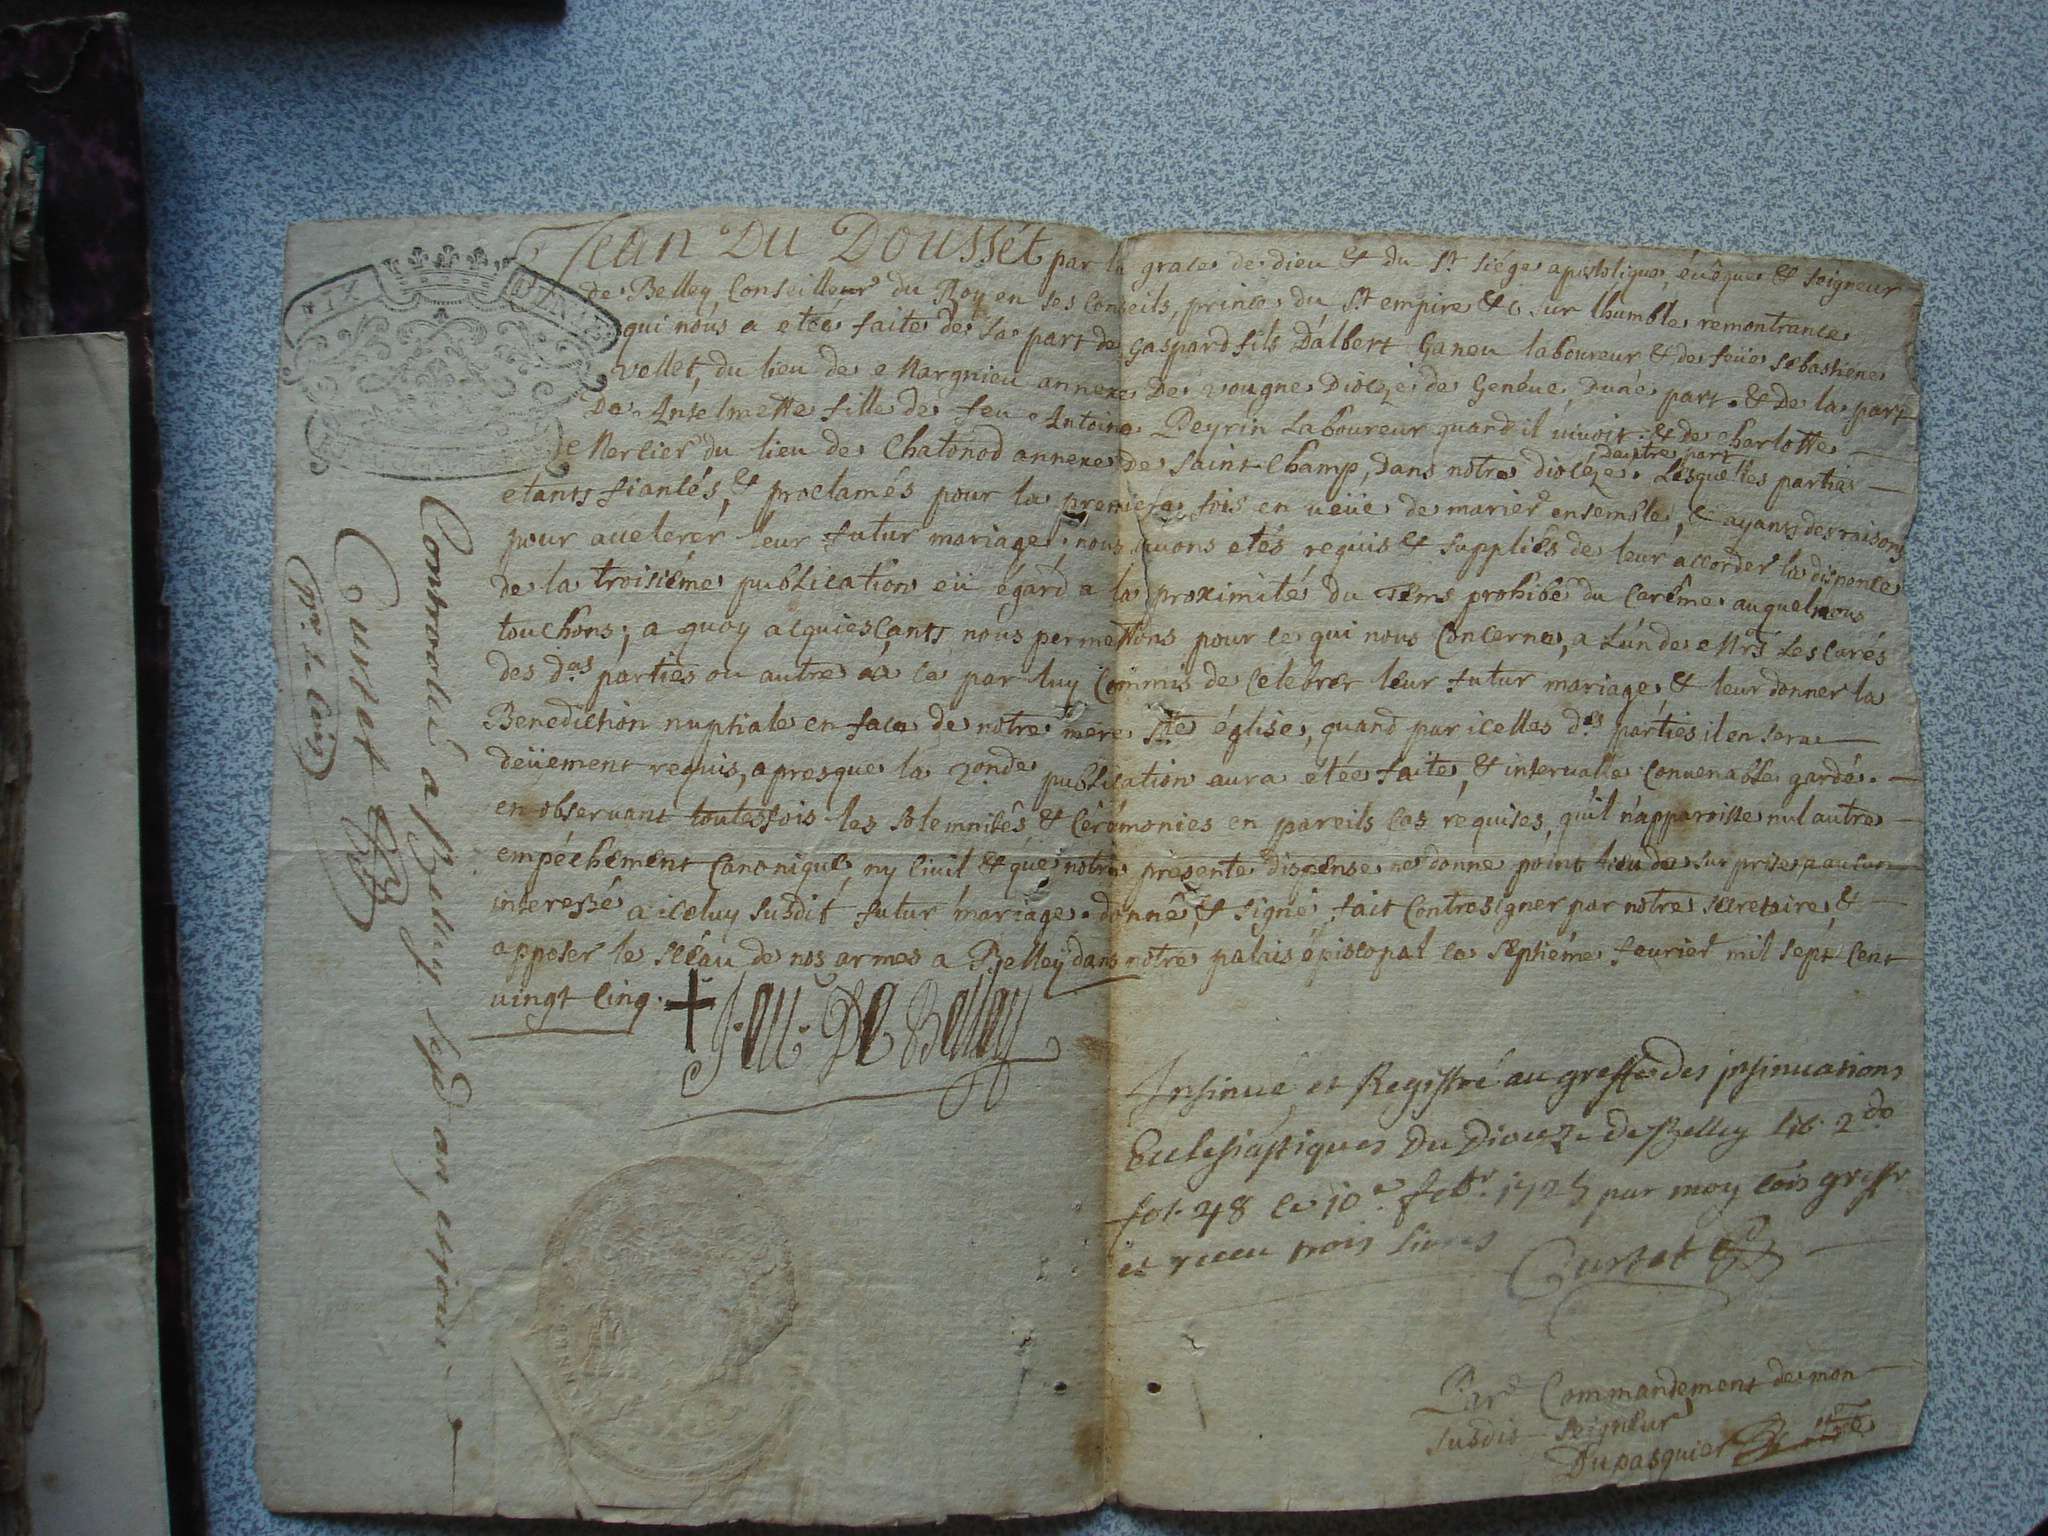 Jean Du Doussét par la grace de dieu & du St siége apostolique, évêque & seigneur
de Belley, Conseiller du Roy en ses Conseils, prince du St empire &c sur lhumble remontrance
qui nous a etée faite de la part de Gaspard fils D'albert Ganeu laboureur & de feüe sebastiene
vellet, du lieu de Margnieu annexe De vougne Diocèze de Genéve, Dune part. & De la part
De Anselmette fille de feu Antoine Peyrin Laboureur quand il vivoit & de charlotte
Mercier du lieu de Chatonod annexe de saint Champ, Dans notre diocéze. dautre part Lesquelles parties
etants fiancés, & proclamés pour la premiere fois en veüe de marier ensemble, & ayants des raisons
pour accelerér leur futur mariage, nous avons etés requis & suppliés de leur accorder la dispence
de la troisiéme publication eü égard a la proximité du Tems prohibé du Caréme auquel nous
touchons; a quoy acquiesçants nous permettons pour ce qui nous Concerne, a L'un de Mrs Les curés
des d.es parties ou autre a ce par luy Commis de Celebrer leur futur mariage, & leur donner la
Benediction nuptiale en face de notre mere ste église, quand par icelles d.es parties il en sera
deüement requis, apresque la 2onde publication aura étée faite, & intervalle convenable gardé.
en observant toutesfois les solemnités & Cérémonies en pareils cas requises, qu'il n'apparoisse nul autre
empéchement Canonique, ny Civil & que notre presente dispense ne donne point lieu de surprise a aucun
interessé a iceluy susdit futur mariage. donné, & signé, fait Contresigner par notre secretaire, &
apposer le scéau de nos armes a Belley dans notre palais épiscopal le septiéme fevrier mil sept Cent
vingt Cinq.
+ J. év. De Belley
Insinué et Registré au greffe des insinuations
Ecclesiastiques Du Dioceze de Belley lib. 2do
fol. 48 le 10e febr. 1725 par moy Cois greffr
et receu trois livres
Curtet
Par Commandement de mon
susdit seigneur
Dupasquier
Controollé a Belley lesd. an, et jour
Curtet